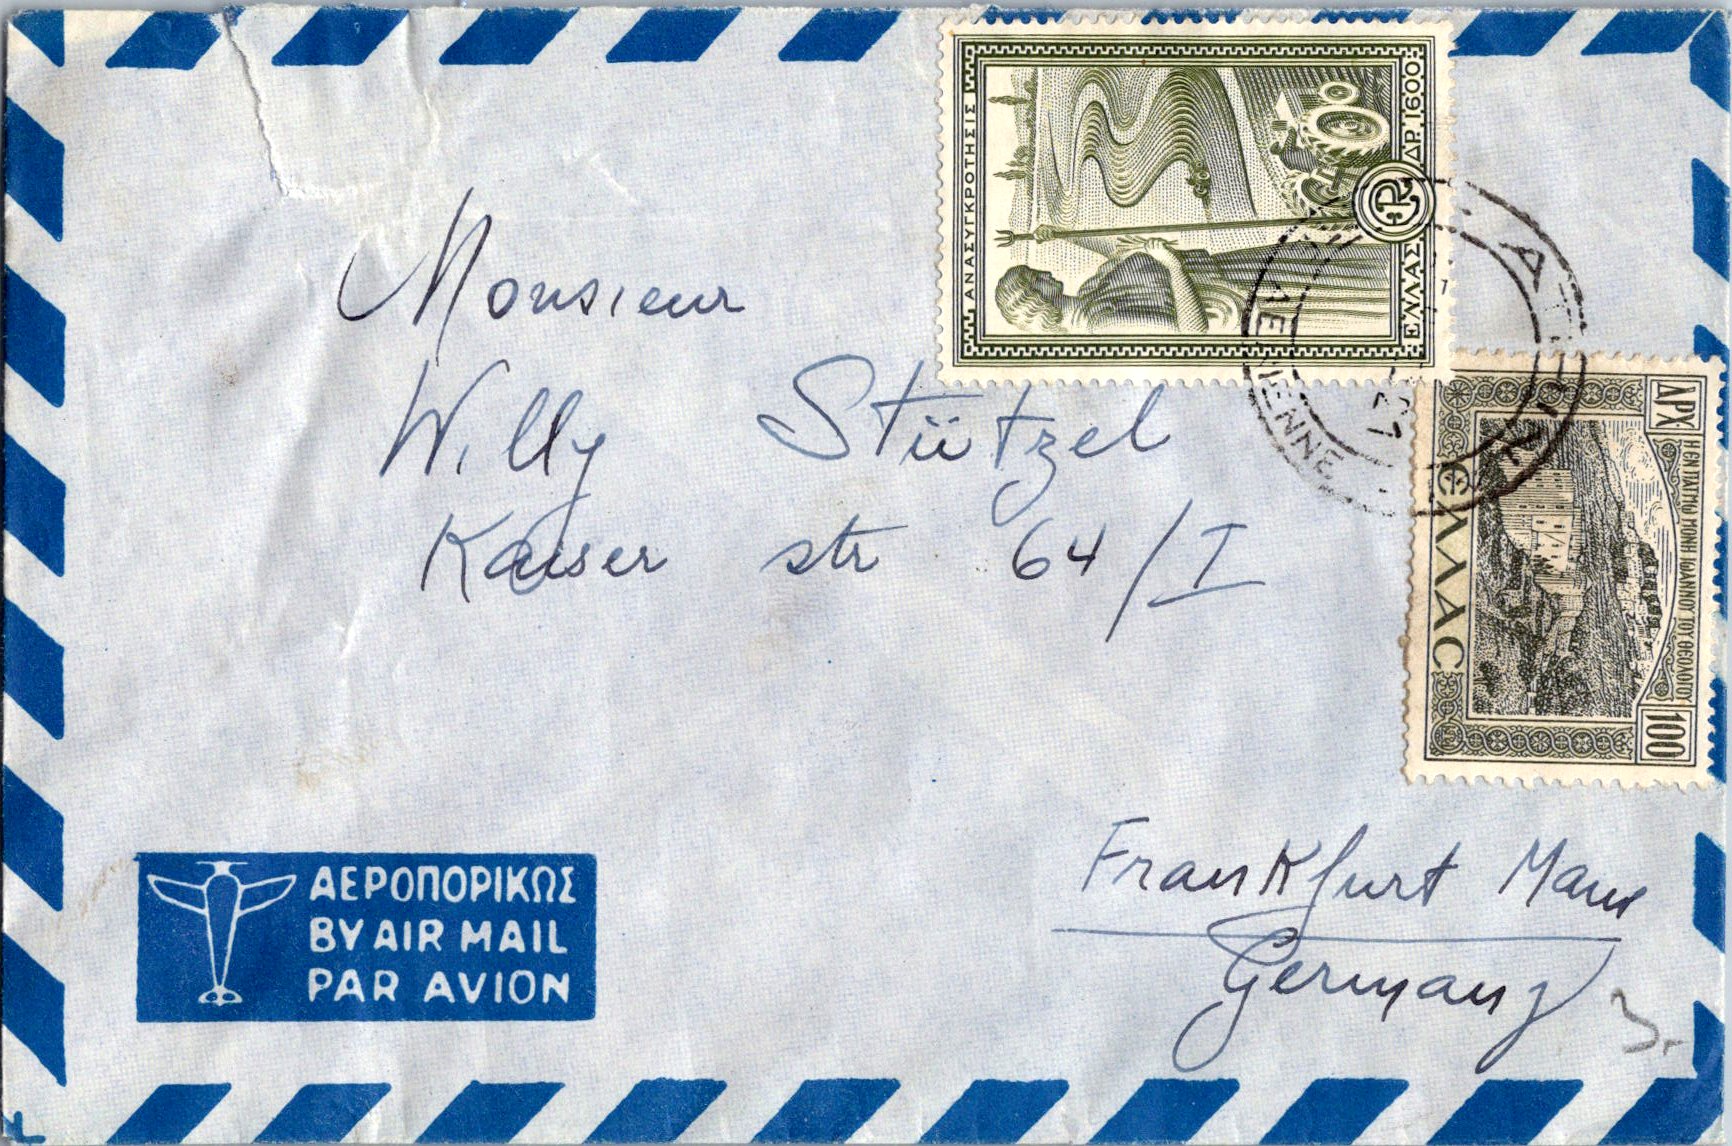 Monsieur
Willy Stützel
Kaiser str 64/I
Frankfurt Main
Germany
ΑΕΡΟΠΟΡΙΚΩΣ
BY AIR MAIL
PAR AVION
ΑΝΑΣΥΓΚΡΟΤΗΣΙΣ
ΕΛΛΑΣ ΔΡ. 1600
ΔΡΧ. 100
Η ΕΝ ΠΑΤΜῼ ΜΟΝΗ ΙΩΑΝΝΟΥ ΤΟΥ ΘΕΟΛΟΓΟΥ
ΕΛΛΑС